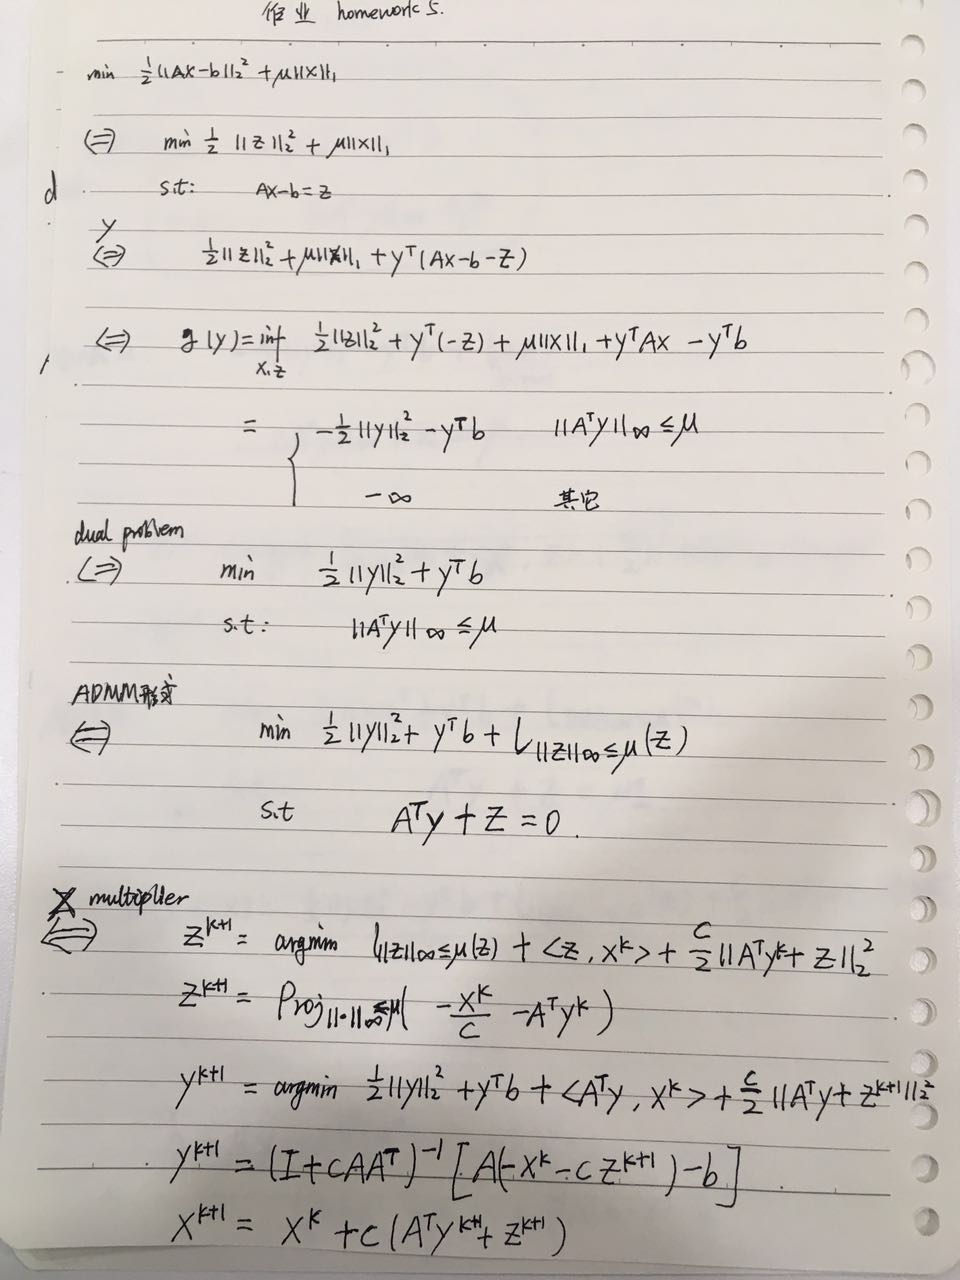 作业 homework 5.
min ½||Ax-b||₂² + μ||x||₁
⟺ min ½ ||z||₂² + μ||x||₁
s.t: Ax-b=z
d
y
⟺ ½||z||₂² + μ||x||₁ + yᵀ(Ax-b-z)
⟺ g(y) = inf_{x,z} ½||z||₂² + yᵀ(-z) + μ||x||₁ + yᵀAx - yᵀb
= { -½||y||₂² - yᵀb ||Aᵀy||∞ ≤ μ
-∞ 其它
dual problem
⟺ min ½||y||₂² + yᵀb
s.t: ||Aᵀy||∞ ≤ μ
ADMM形式
⟺ min ½||y||₂² + yᵀb + l_{||z||∞≤μ}(z)
s.t Aᵀy + z = 0.
X multiplier
⟺ z^{k+1} = argmin l_{||z||∞≤μ}(z) + <z, x^k> + c/2 ||Aᵀy^k + z||₂²
z^{k+1} = Proj_{||·||∞≤μ}( -x^k/c - Aᵀy^k )
y^{k+1} = argmin ½||y||₂² + yᵀb + <Aᵀy, x^k> + c/2 ||Aᵀy + z^{k+1}||₂²
y^{k+1} = (I+cAAᵀ)⁻¹ [A(-x^k - c z^{k+1}) - b]
x^{k+1} = x^k + c(Aᵀy^{k+1} + z^{k+1})